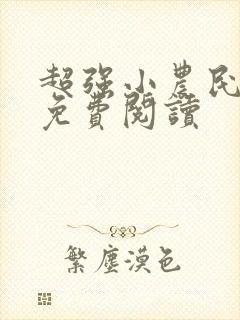 超强小農民
免費閱讀
繁塵漠色